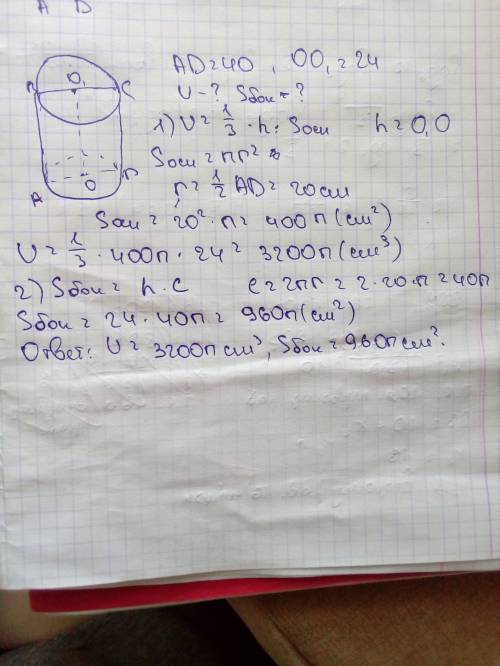 A D
O₁
B C
O D
A
AD=40, OO₁=24
V-? Sбок-?
1) V=1/3·h·Sосн h=O₁O
Sосн=πr²
r=1/2 AD=20см
Sосн=20²·π=400π(см²)
V=1/3·400π·24=3200π(см³)
2) Sбок=h·C C=2πr=2·20·π=40π
Sбок=24·40π=960π(см²)
Ответ: V=3200π см³, Sбок=960π см².